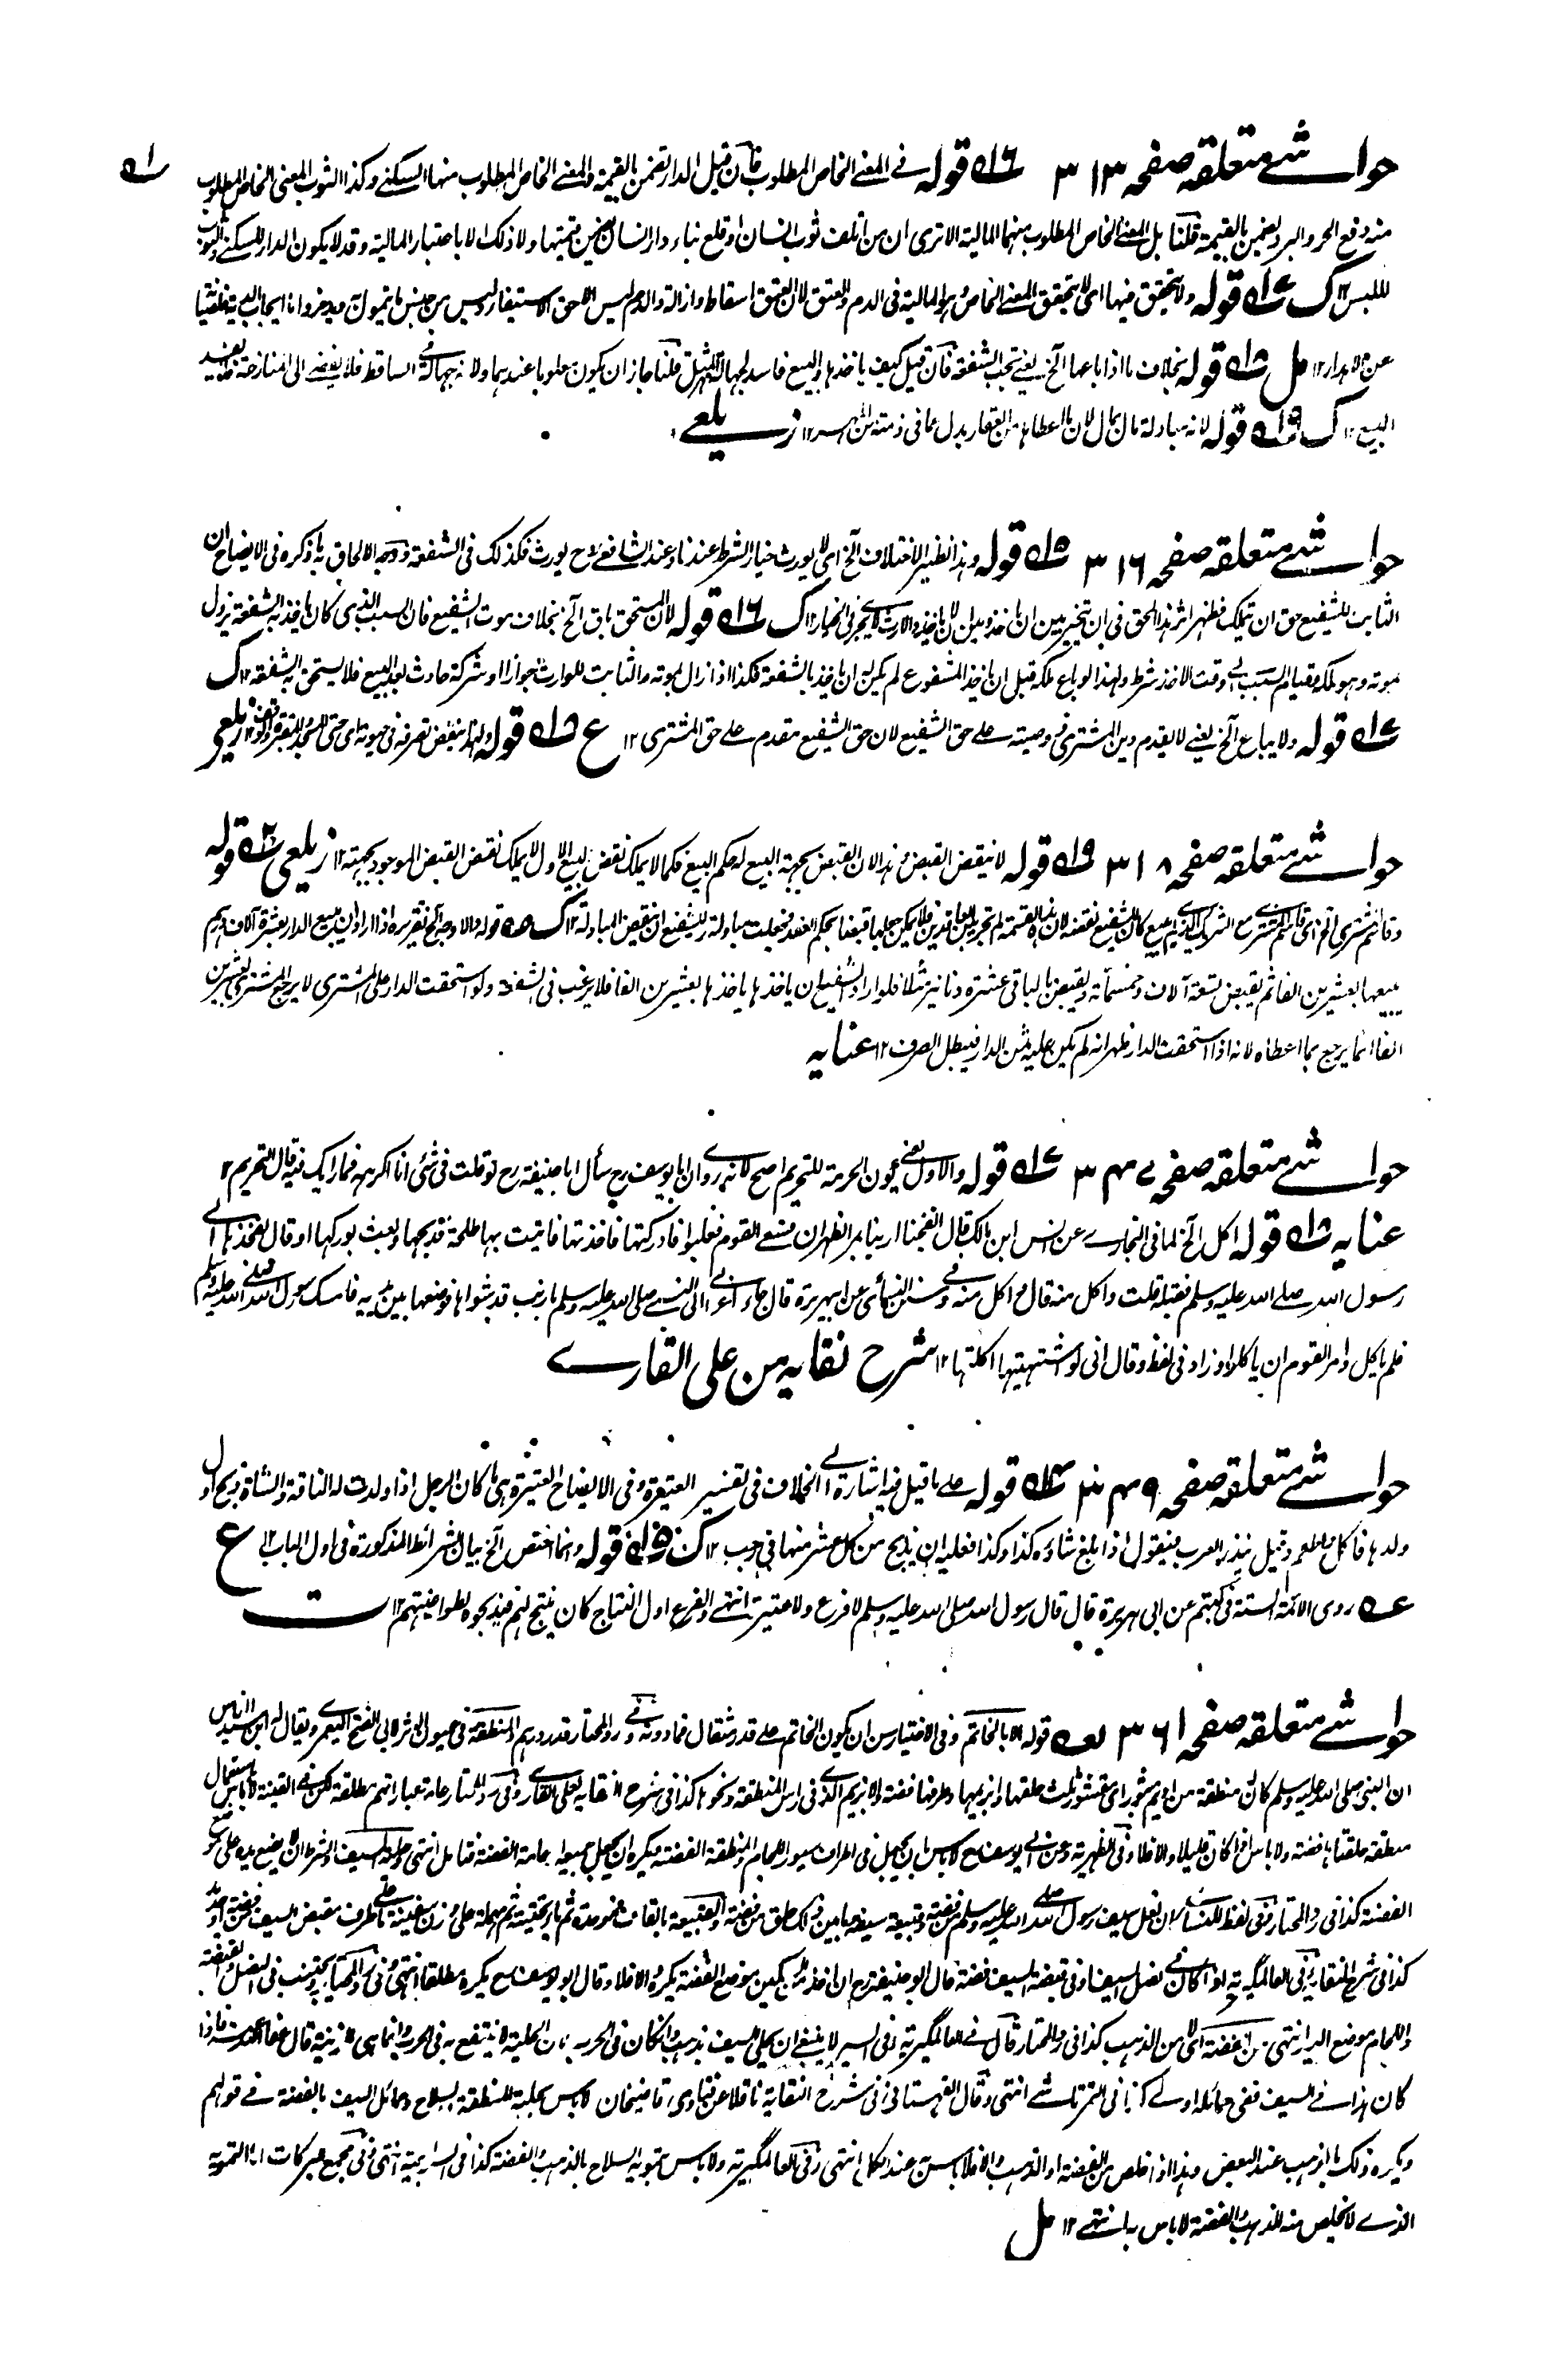 حواشي متعلقه صفحه ٣١٣ ١٦ قوله في المعنى الخاص المطلوب فان قيل الدار تضمن بالقيمة والمعنى الخاص المطلوب منها السكنى وكذا الثوب المعنى الخاص المطلوب
منه دفع الحر والبرد ويضمن بالقيمة قلنا بل المعنى الخاص المطلوب منهما المالية الا ترى ان من اتلف ثوب انسان او قلع بناء دار انسان يضمن قيمتها ولا ذلك الا باعتبار المالية وقد لا يكون الدار للسكنى والثوب
لللبس ١٢ ك ١٧ قوله ولا يتحقق فيهما اى لا يتحقق المعنى الخاص وهو المالية فى الدم والعتق لان العتق اسقاط وازالة والدم ليس الا حق الاستيفاء وليس من جنس ما يتمول به ويدخر وانما ايجاب الدية
عن الاهدار ١٢ مل ١٨ قوله بخلاف ما اذا باعها الخ يعنى تجب الشفعة فان قيل كيف ياخذها والبيع فاسد لجهالة الثمن قلنا جاز ان يكون معلوما عندهما ولان جهالة الساقط فلا يفضى الى المنازعة فلا يفسد
البيع ١٢ ك ١٩ قوله لانه مبادلة مال بمال لان ما اعطاه من العقار بدل عما فى ذمته من المهر ١٢ زيلعى
حواشي متعلقه صفحه ٣١٦ ١٥ قوله وهذا نظير الاختلاف الخ اى لا يورث خيار الشرط عندنا وعند الشافعى رح يورث فكذلك فى الشفعة ووجه الالحاق ما ذكره فى الايضاح ان
الثابت للشفيع حق ان يتملك فظهر اثر هذا الحق فى ان يتخير بين ان ياخذ وبين ان لا ياخذ والارث لا يجرى فى الخيار ١٢ ك ١٦ قوله لان المستحق باق الخ بخلاف موت الشفيع فان السبب الذى كان ياخذ به الشفعة يزول
بموته وهو ملكه وقيام السبب الى وقت الاخذ شرط ولهذا لو باع ملكه قبل ان ياخذ المشفوع لم يكن له ان ياخذ بالشفعة فكذا اذا زال بموته والثابت للوارث جوازا او شركة حادث بعد البيع فلا يستحق به الشفعة ١٢ ك
١٧ قوله ولا يباع الخ يعنى لا يقدم دين المشترى ووصيته على حق الشفيع لان حق الشفيع مقدم على حق المشترى ١٢ ع ١٨ قوله ولهذا ينقض تصرفه فى حيوته اى حتى المسجد والمقبرة والوقف ١٢ زيلعى
حواشي متعلقه صفحه ٣١٨ ١٩ قوله لا ينقض القبض وهذا لان القبض بجهة البيع له حكم البيع فكما لا يملك نقض البيع الاول لا يملك نقض القبض الموجود بجهته ١٢ زيلعى ٢٠ قوله
وقاسم المشترى الخ اى قاسم المشترى مع الشريك الذى لم يبع كان للشفيع نقضه لان هذه القسمة لم تجر بين العاقدين فلا يمكن جعلها قبضا بحكم العقد فجعلت مبادلة وللشفيع ان ينقض المبادلة ١٢ ك قوله والاوجه الخ تقريره اذا اراد ان يبيع الدار بعشرة آلاف درهم
يبيعها بعشرين الفا ثم يقبض تسعة آلاف وخمسمائة ويقبض بالباقى عشرة دنانير مثلا فلو اراد الشفيع ان ياخذها ياخذها بعشرين الفا فلا يرغب فى الشفعة ولو استحقت الدار على المشترى لا يرجع المشترى بعشرين
الفا انما يرجع بما اعطاه لانه اذا استحقت الدار ظهر انه لم يكن عليه ثمن الدار فيبطل الصرف ١٢ عنايه
حواشي متعلقه صفحه ٣٤٧ ١٧ قوله والاول يعنى كون الحرمة للتحريم اصح لانه روى ان ابا يوسف رح سأل ابا حنيفة رح لو قلت فى شئ انا اكرهه فما رايك فيه قال التحريم ١٢
عنايه ١٨ قوله اكل الخ لما فى البخارى عن انس ابن مالك قال انفجنا ارنبا بمر الظهران فسعى القوم فغلبوا فادركتها فاخذتها فاتيت بها طلحة فذبحها وبعث بوركها او قال بفخذها الى
رسول الله صلى الله عليه وسلم فقبله قلت واكل منه قال واكل منه وفى سنن النسائى عن ابى هريرة قال جاء اعرابى الى النبى صلى الله عليه وسلم بارنب قد شواها فوضعها بين يديه فامسك رسول الله صلى الله عليه وسلم
فلم ياكل وامر القوم ان ياكلوا وزاد فى لفظ وقال انى لو اشتهيتها اكلتها ١٢ شرح نقايه من على القارى
حواشي متعلقه صفحه ٣٤٩ قوله على ما قيل فيه اشارة الى الخلاف فى تفسير العتيرة وفى الايضاح العتيرة هى ما كان الرجل اذا ولدت له الناقة والشاة ذبح اول
ولدها فاكل واطعم وقيل نذر العرب فيقول اذا بلغ شاؤه كذا وكذا فعليه ان يذبح من كل عشر منها فى رجب ١٢ ك ١٥ قوله وانما اختص الخ بيان الشرائط المذكورة فى اول الباب ١٢ ع
عه روى الائمة الستة فى كتبهم عن ابى هريرة قال قال رسول الله صلى الله عليه وسلم لا فرع ولا عتيرة انتهى والفرع اول النتاج كان ينتج لهم فيذبحوه لطواغيتهم ١٢ ت
حواشي متعلقه صفحه ٣٦١ قوله الا بالخاتم وفى الاختيار سن ان يكون الخاتم على قدر مثقال فما دونه وفى رد المحتار قدر درهم والمنطقة فى عيون الاثر لابى الفتح اليعمرى ويقال له ابن سيد الناس
ان النبى صلى الله عليه وسلم كان له منطقة من اديم مبشور ثلث حلقها وابزيمها وطرفها فضة والابزيم الذى فى راس المنطقة ونحوها كذا فى شرح النقاية لعلى القارى وفى رد المحتار عامة عباراتهم مطلقة لكن فى القنية لا باس باستعمال
منطقة حلقتاها فضة ولا باس اذا كان قليلا والا فلا وفى الظهيرية وعن ابى يوسف رح لا باس ان يجعل فى اطراف سيور اللجام والمنطقة الفضة ويكره ان يجعل جميعه او عامته الفضة فتامل انتهى وحلية السيف والشرط ان لا يضع يده على موضع
الفضة كذا فى رد المحتار وفى لفظ للنسائى ان نعل سيف رسول الله صلى الله عليه وسلم من فضة وقبيعة سيفه وما بين ذلك حلق من فضة والقبيعة بالقاف على طرف مقبض السيف من فضة او حديد
كذا فى شرح النقاية وفى العالمگيرية لو كان فى نصل السيف او فى قبضة السيف فضة قال ابو حنيفة رح ان اخذ من موضع الفضة يكره والا فلا وقال ابو يوسف رح يكره مطلقا انتهى وفى رد المحتار ويجتنب فى النصل والقبضة
واللجام موضع اليد انتهى من الفضة اى لا من الذهب كذا فى رد المحتار قال فى العالمگيرية وفى السير لا ينبغى ان يحلى السيف بذهب وان كان فى الحرب لان الحلية لا ينتفع به فى الحرب وانما هى للزينة قال
كان هذا فى السيف ففى حمائله اولى كذا فى التمرتاشى انتهى وقال القهستانى وفى شرح النقاية ناقلا عن فتاوى قاضيخان لا باس بحلية المنطقة والسلاح وحمائل السيف بالفضة فى قولهم
ويكره ذلك بالذهب عند البعض وهذا اذا خلص من الفضة او الذهب والا فلا باس به عند الكل انتهى وفى العالمگيرية ولا باس بتمويه السلاح بالذهب والفضة كذا فى السراجية انتهى وفى مجمع البركات اما التمويه
الذى لا يخلص منه الذهب والفضة لا باس به انتهى ١٢ مل